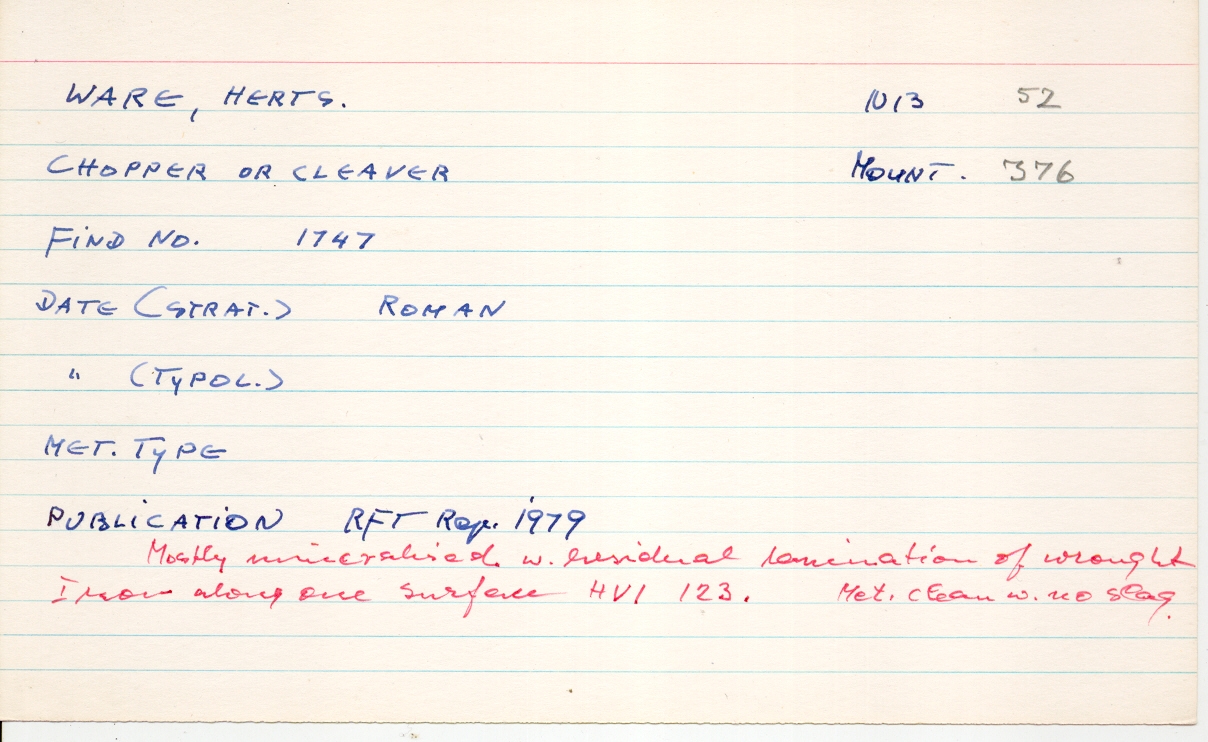 WARE, HERTS. 1013 52
CHOPPER OR CLEAVER MOUNT. 376
FIND NO. 1747
DATE (STRAT.) ROMAN
" (TYPOL.)
MET. TYPE
PUBLICATION RFT Rep. 1979
Mostly mineralised w. residual lamination of wrought
Iron along one surface HV1 123. Met. clean w. no slag.